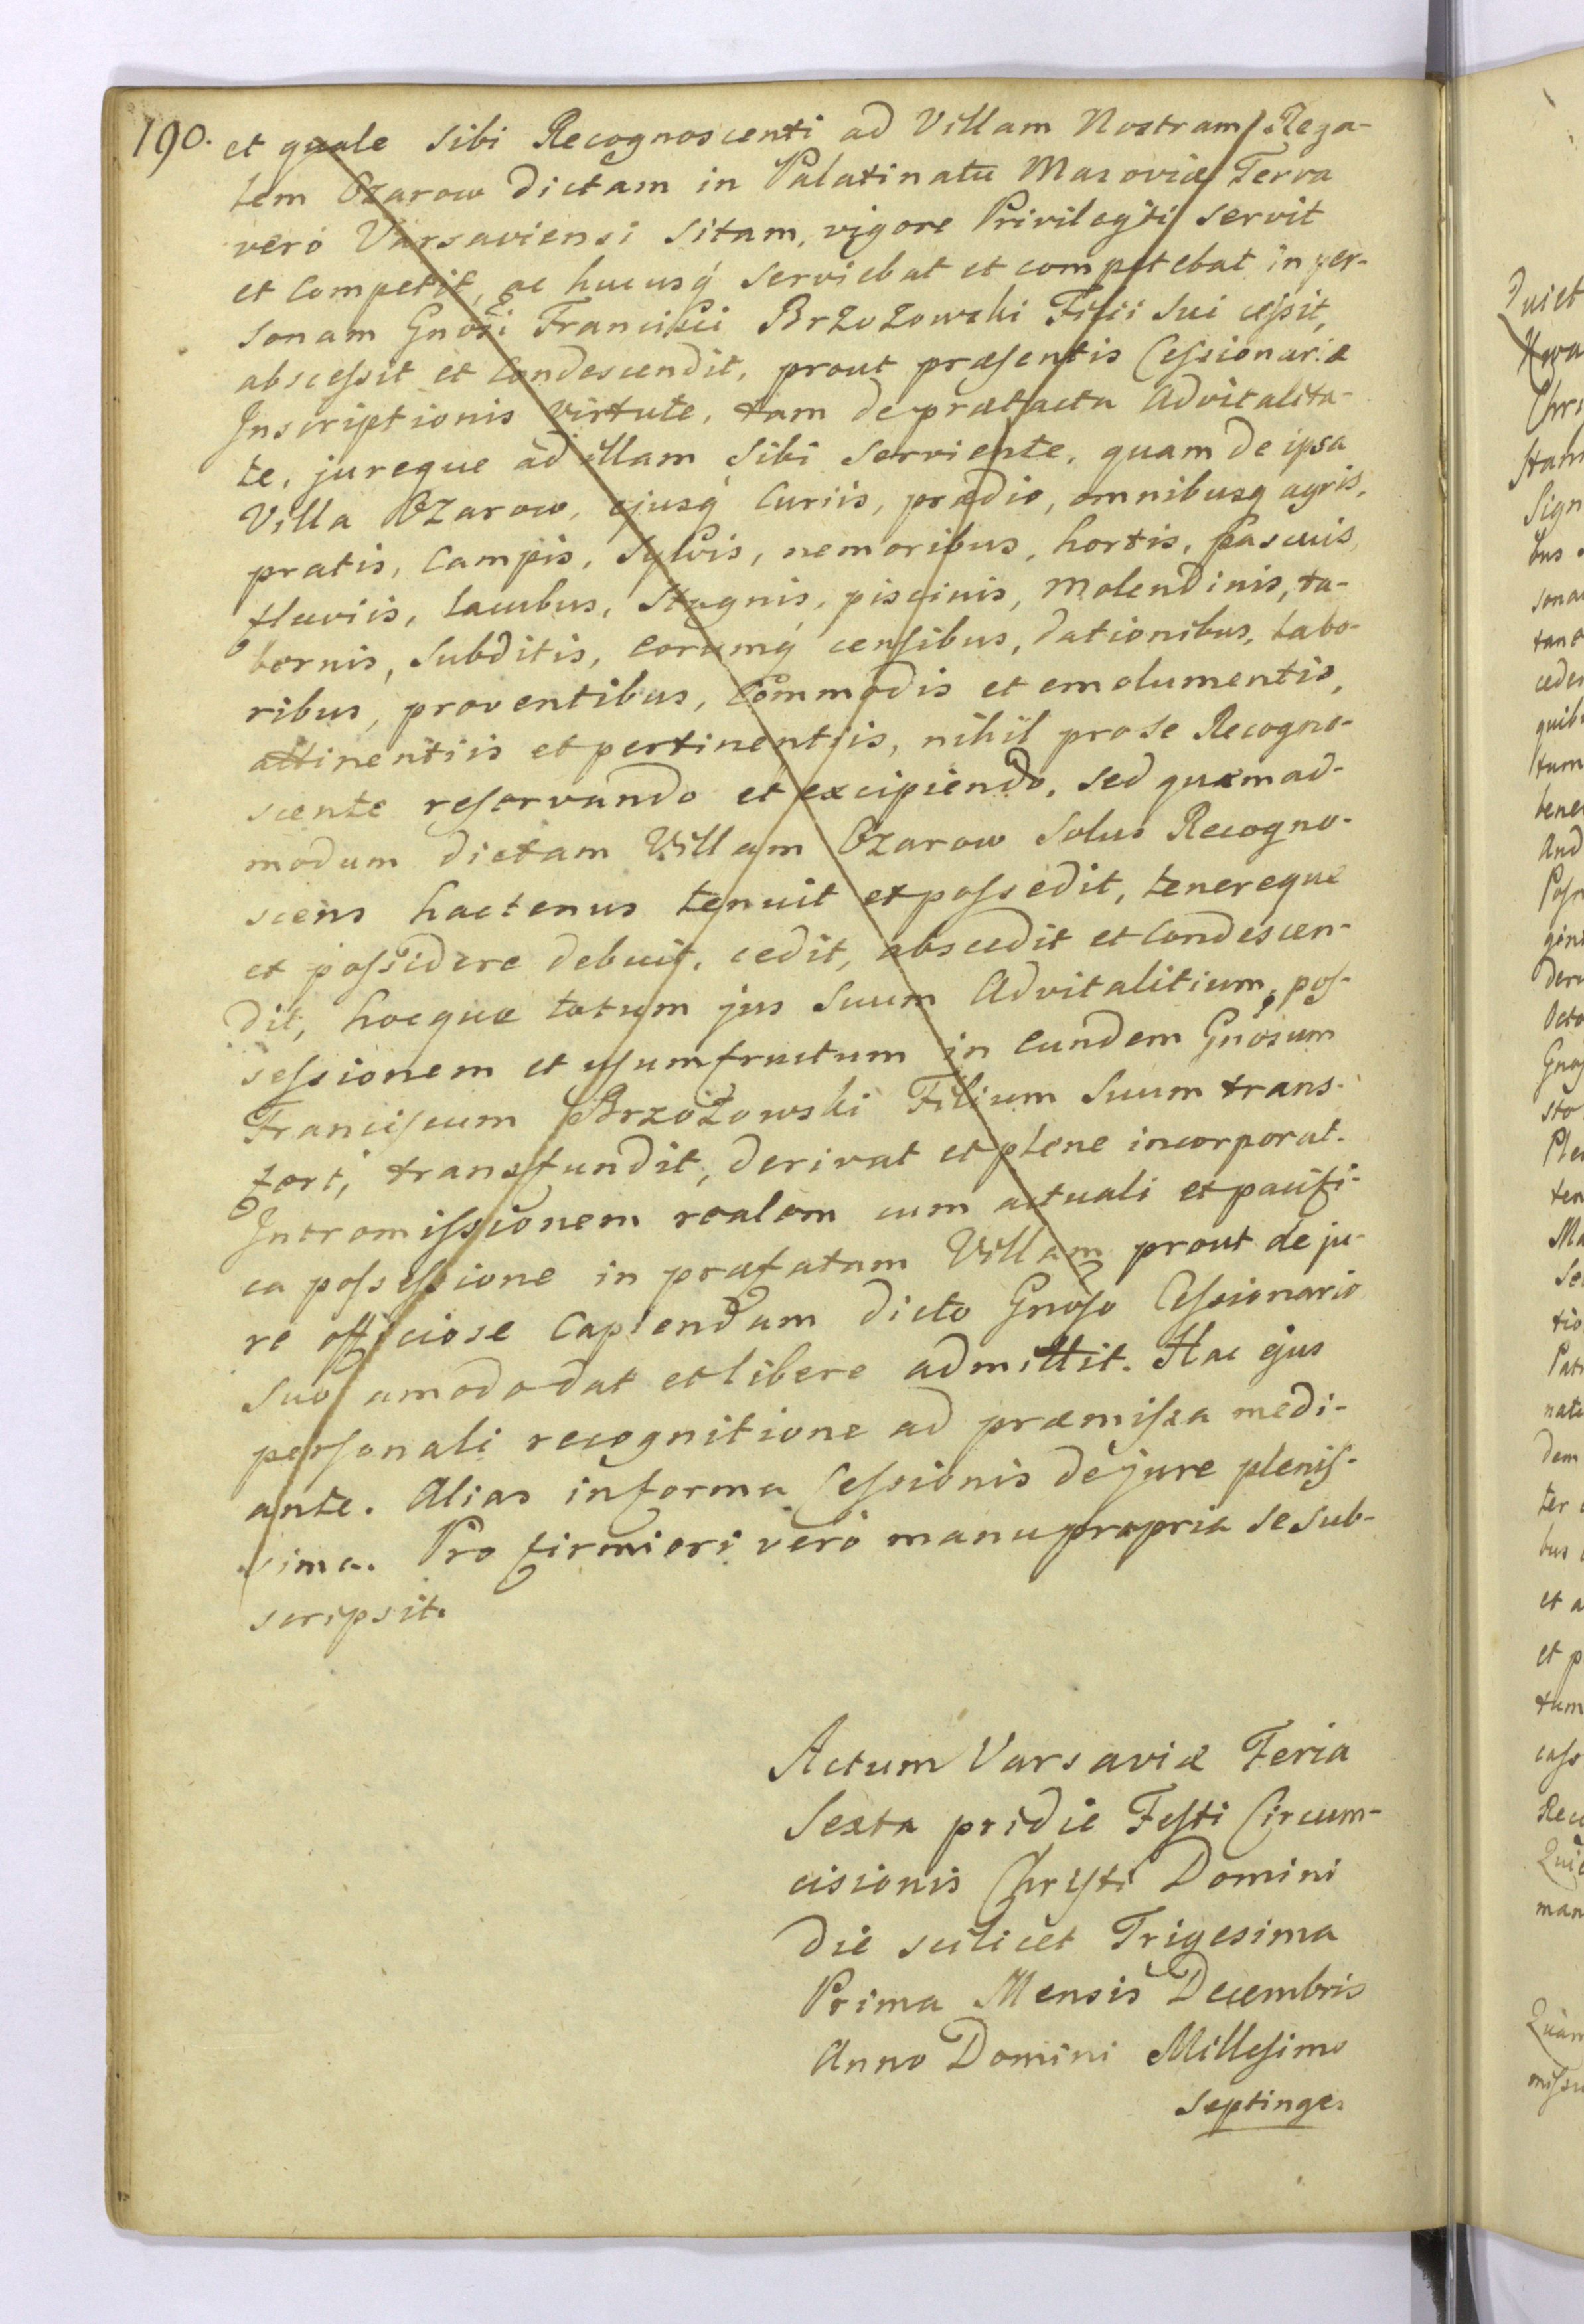 190. et quale Sibi Recognoscenti ad Villam Nostram Rega-
lem Ozarow dictam in Palatinatu Masoviæ Terra
verò Varsaviensi Sitam, vigore Privilegiti servit
et Competit, ac hucusq́ serviebat et competebat in per-
sonam Gnôsi Francisci Brzozowski Filii Sui ceſsit,
absceſsit et Condescendit, prout præſentis Ceſsionariæ
Inscriptionis virtute, tam de prætacta Advitalita-
te, jureque ad illam Sibi Serviente, quam de ipsa
Villa Ozarow, ejusq́ Curiis, prædio, omnibusq agris,
pratis, Campis, Sylvis, nemoribus, hortis, pascuis,
fluviis, Lacubus, Stagnis, piscinis, Molendinis, ta-
bernis, Subditis, Eorumq́ cenſibus, dationibus, Labo-
ribus, proventibus, Commodis et emolumentis,
attinentiis et pertinentiis, nihil pro se Recogno-
scente reſervando et excipiendo, Sed quemad-
modum dictam Villam Ozarow Solus Recogno-
scens hactenus tenuit et poſsedit, tenereque
et poſsidere debuit, cedit, abscedit et Condescen-
dit, hocque totum jus Suum Advitalitium, poſ-
seſsionem et uſumfructum in Eundem Gnôsum
Franciſcum Brzozowski Filium Suum trans-
fert, transfundit, derivat et plene incorporat.
Intromiſsionem realem cum actuali et pacifi-
ca poſseſsione in præfatam Villam prout de ju-
re officiose Capiendam dicto Gnoſo Ceſsionario
Suo amodo dat et libere admittit. Hac ejus
perſonali recognitione ad præmiſsa medi-
ante. Alias in forma Ceſsionis de jure pleniſ-
sima. Pro firmiori verò manu propria se sub-
scripsit.
Actum Varsaviæ Feria
Sexta pridie Feſti Circum-
cisionis Chryſti Domini
Die scilicet Trigesima
Prima Mensis Decembris
Anno Domini Milleſimo
Septinge.